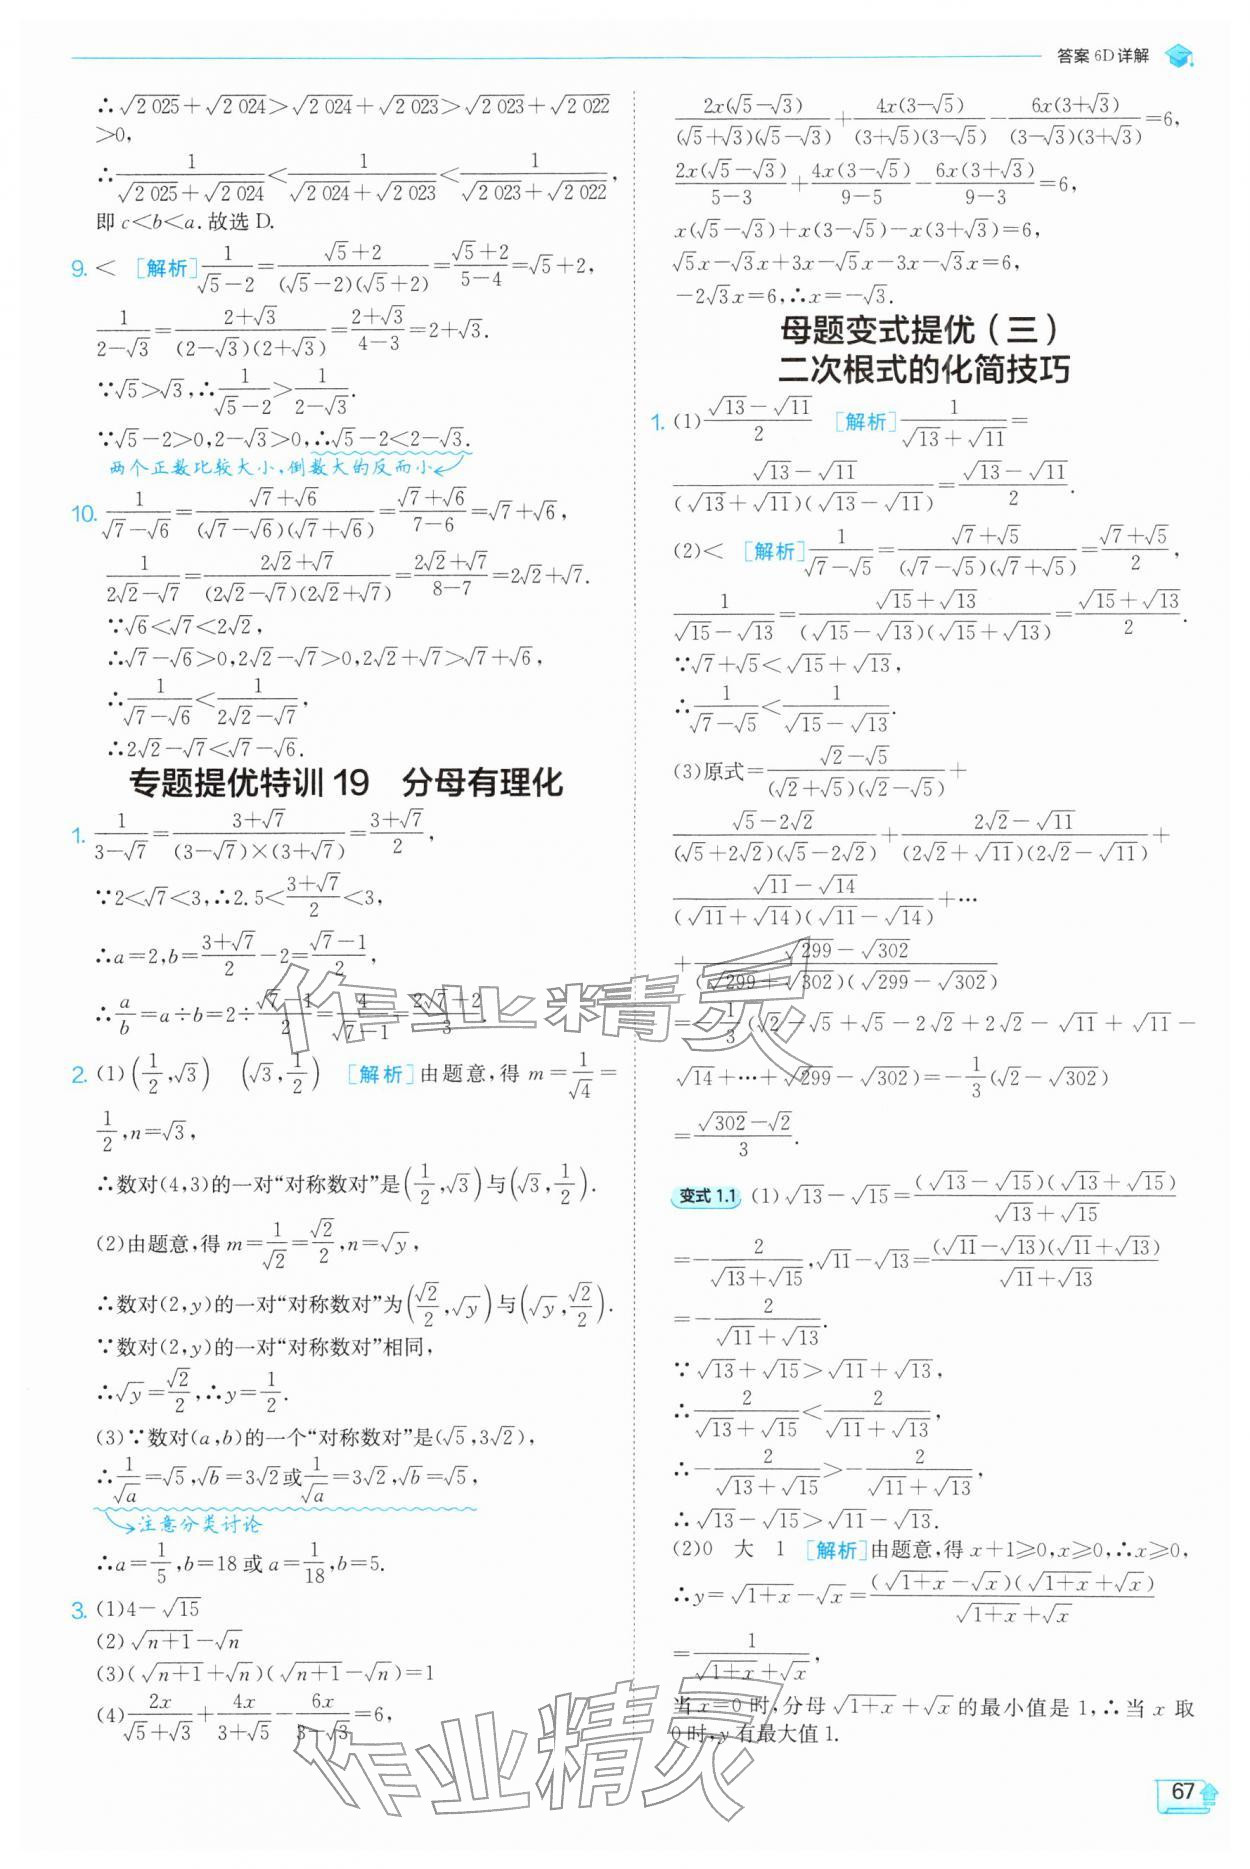 答案 6D详解
∴√(2 025)+√(2 024)>√(2 024)+√(2 023)>√(2 023)+√(2 022)
>0,
∴1/(√(2 025)+√(2 024))<1/(√(2 024)+√(2 023))<1/(√(2 023)+√(2 022)),
即c<b<a.故选D.
9. < [解析]1/(√5-2)=(√5+2)/((√5-2)(√5+2))=(√5+2)/(5-4)=√5+2,
1/(2-√3)=(2+√3)/((2-√3)(2+√3))=(2+√3)/(4-3)=2+√3.
∵√5>√3,∴1/(√5-2)>1/(2-√3).
∵√5-2>0,2-√3>0,∴√5-2<2-√3.
两个正数比较大小,倒数大的反而小
10. 1/(√7-√6)=(√7+√6)/((√7-√6)(√7+√6))=(√7+√6)/(7-6)=√7+√6,
1/(2√2-√7)=(2√2+√7)/((2√2-√7)(2√2+√7))=(2√2+√7)/(8-7)=2√2+√7.
∵√6<√7<2√2,
∴√7-√6>0,2√2-√7>0,2√2+√7>√7+√6,
∴1/(√7-√6)<1/(2√2-√7),
∴2√2-√7<√7-√6.
专题提优特训19 分母有理化
1. 1/(3-√7)=(3+√7)/((3-√7)×(3+√7))=(3+√7)/2,
∵2<√7<3,∴2.5<(3+√7)/2<3,
∴a=2,b=(3+√7)/2-2=(√7-1)/2,
∴a/b=a÷b=2÷(√7-1)/2=4/(√7-1)=(2√7+2)/3.
2. (1)(1/2,√3) (√3,1/2) [解析]由题意,得m=1/√4=
1/2,n=√3,
∴数对(4,3)的一对“对称数对”是(1/2,√3)与(√3,1/2).
(2)由题意,得m=1/√2=√2/2,n=√y,
∴数对(2,y)的一对“对称数对”为(√2/2,√y)与(√y,√2/2).
∵数对(2,y)的一对“对称数对”相同,
∴√y=√2/2,∴y=1/2.
(3)∵数对(a,b)的一个“对称数对”是(√5,3√2),
∴1/√a=√5,√b=3√2或1/√a=3√2,√b=√5,
注意分类讨论
∴a=1/5,b=18或a=1/18,b=5.
3. (1)4-√15
(2)√(n+1)-√n
(3)(√(n+1)+√n)(√(n+1)-√n)=1
(4)2x/(√5+√3)+4x/(3+√5)-6x/(3-√3)=6,
2x(√5-√3)/((√5+√3)(√5-√3))+4x(3-√5)/((3+√5)(3-√5))-6x(3+√3)/((3-√3)(3+√3))=6,
2x(√5-√3)/(5-3)+4x(3-√5)/(9-5)-6x(3+√3)/(9-3)=6,
x(√5-√3)+x(3-√5)-x(3+√3)=6,
√5x-√3x+3x-√5x-3x-√3x=6,
-2√3x=6,∴x=-√3.
母题变式提优(三)
二次根式的化简技巧
1. (1)(√13-√11)/2 [解析]1/(√13+√11)=
(√13-√11)/((√13+√11)(√13-√11))=(√13-√11)/2.
(2)< [解析]1/(√7-√5)=(√7+√5)/((√7-√5)(√7+√5))=(√7+√5)/2,
1/(√15-√13)=(√15+√13)/((√15-√13)(√15+√13))=(√15+√13)/2.
∵√7+√5<√15+√13,
∴1/(√7-√5)<1/(√15-√13).
(3)原式=(√2-√5)/((√2+√5)(√2-√5))+
(√5-2√2)/((√5+2√2)(√5-2√2))+(2√2-√11)/((2√2+√11)(2√2-√11))+
(√11-√14)/((√11+√14)(√11-√14))+⋯
+(√299-√302)/((√299+√302)(√299-√302))
=-1/3(√2-√5+√5-2√2+2√2-√11+√11-
√14+⋯+√299-√302)=-1/3(√2-√302)
=(√302-√2)/3.
变式1.1 (1)√13-√15=((√13-√15)(√13+√15))/(√13+√15)
=-2/(√13+√15),√11-√13=((√11-√13)(√11+√13))/(√11+√13)
=-2/(√11+√13).
∵√13+√15>√11+√13,
∴2/(√13+√15)<2/(√11+√13),
∴-2/(√13+√15)>-2/(√11+√13),
∴√13-√15>√11-√13.
(2)0 大 1 [解析]由题意,得x+1≥0,x≥0,∴x≥0,
∴y=√(1+x)-√x=((√(1+x)-√x)(√(1+x)+√x))/(√(1+x)+√x)
=1/(√(1+x)+√x),
当x=0时,分母√(1+x)+√x的最小值是1,∴当x取
0时,y有最大值1.
作业精灵
作业精灵
67